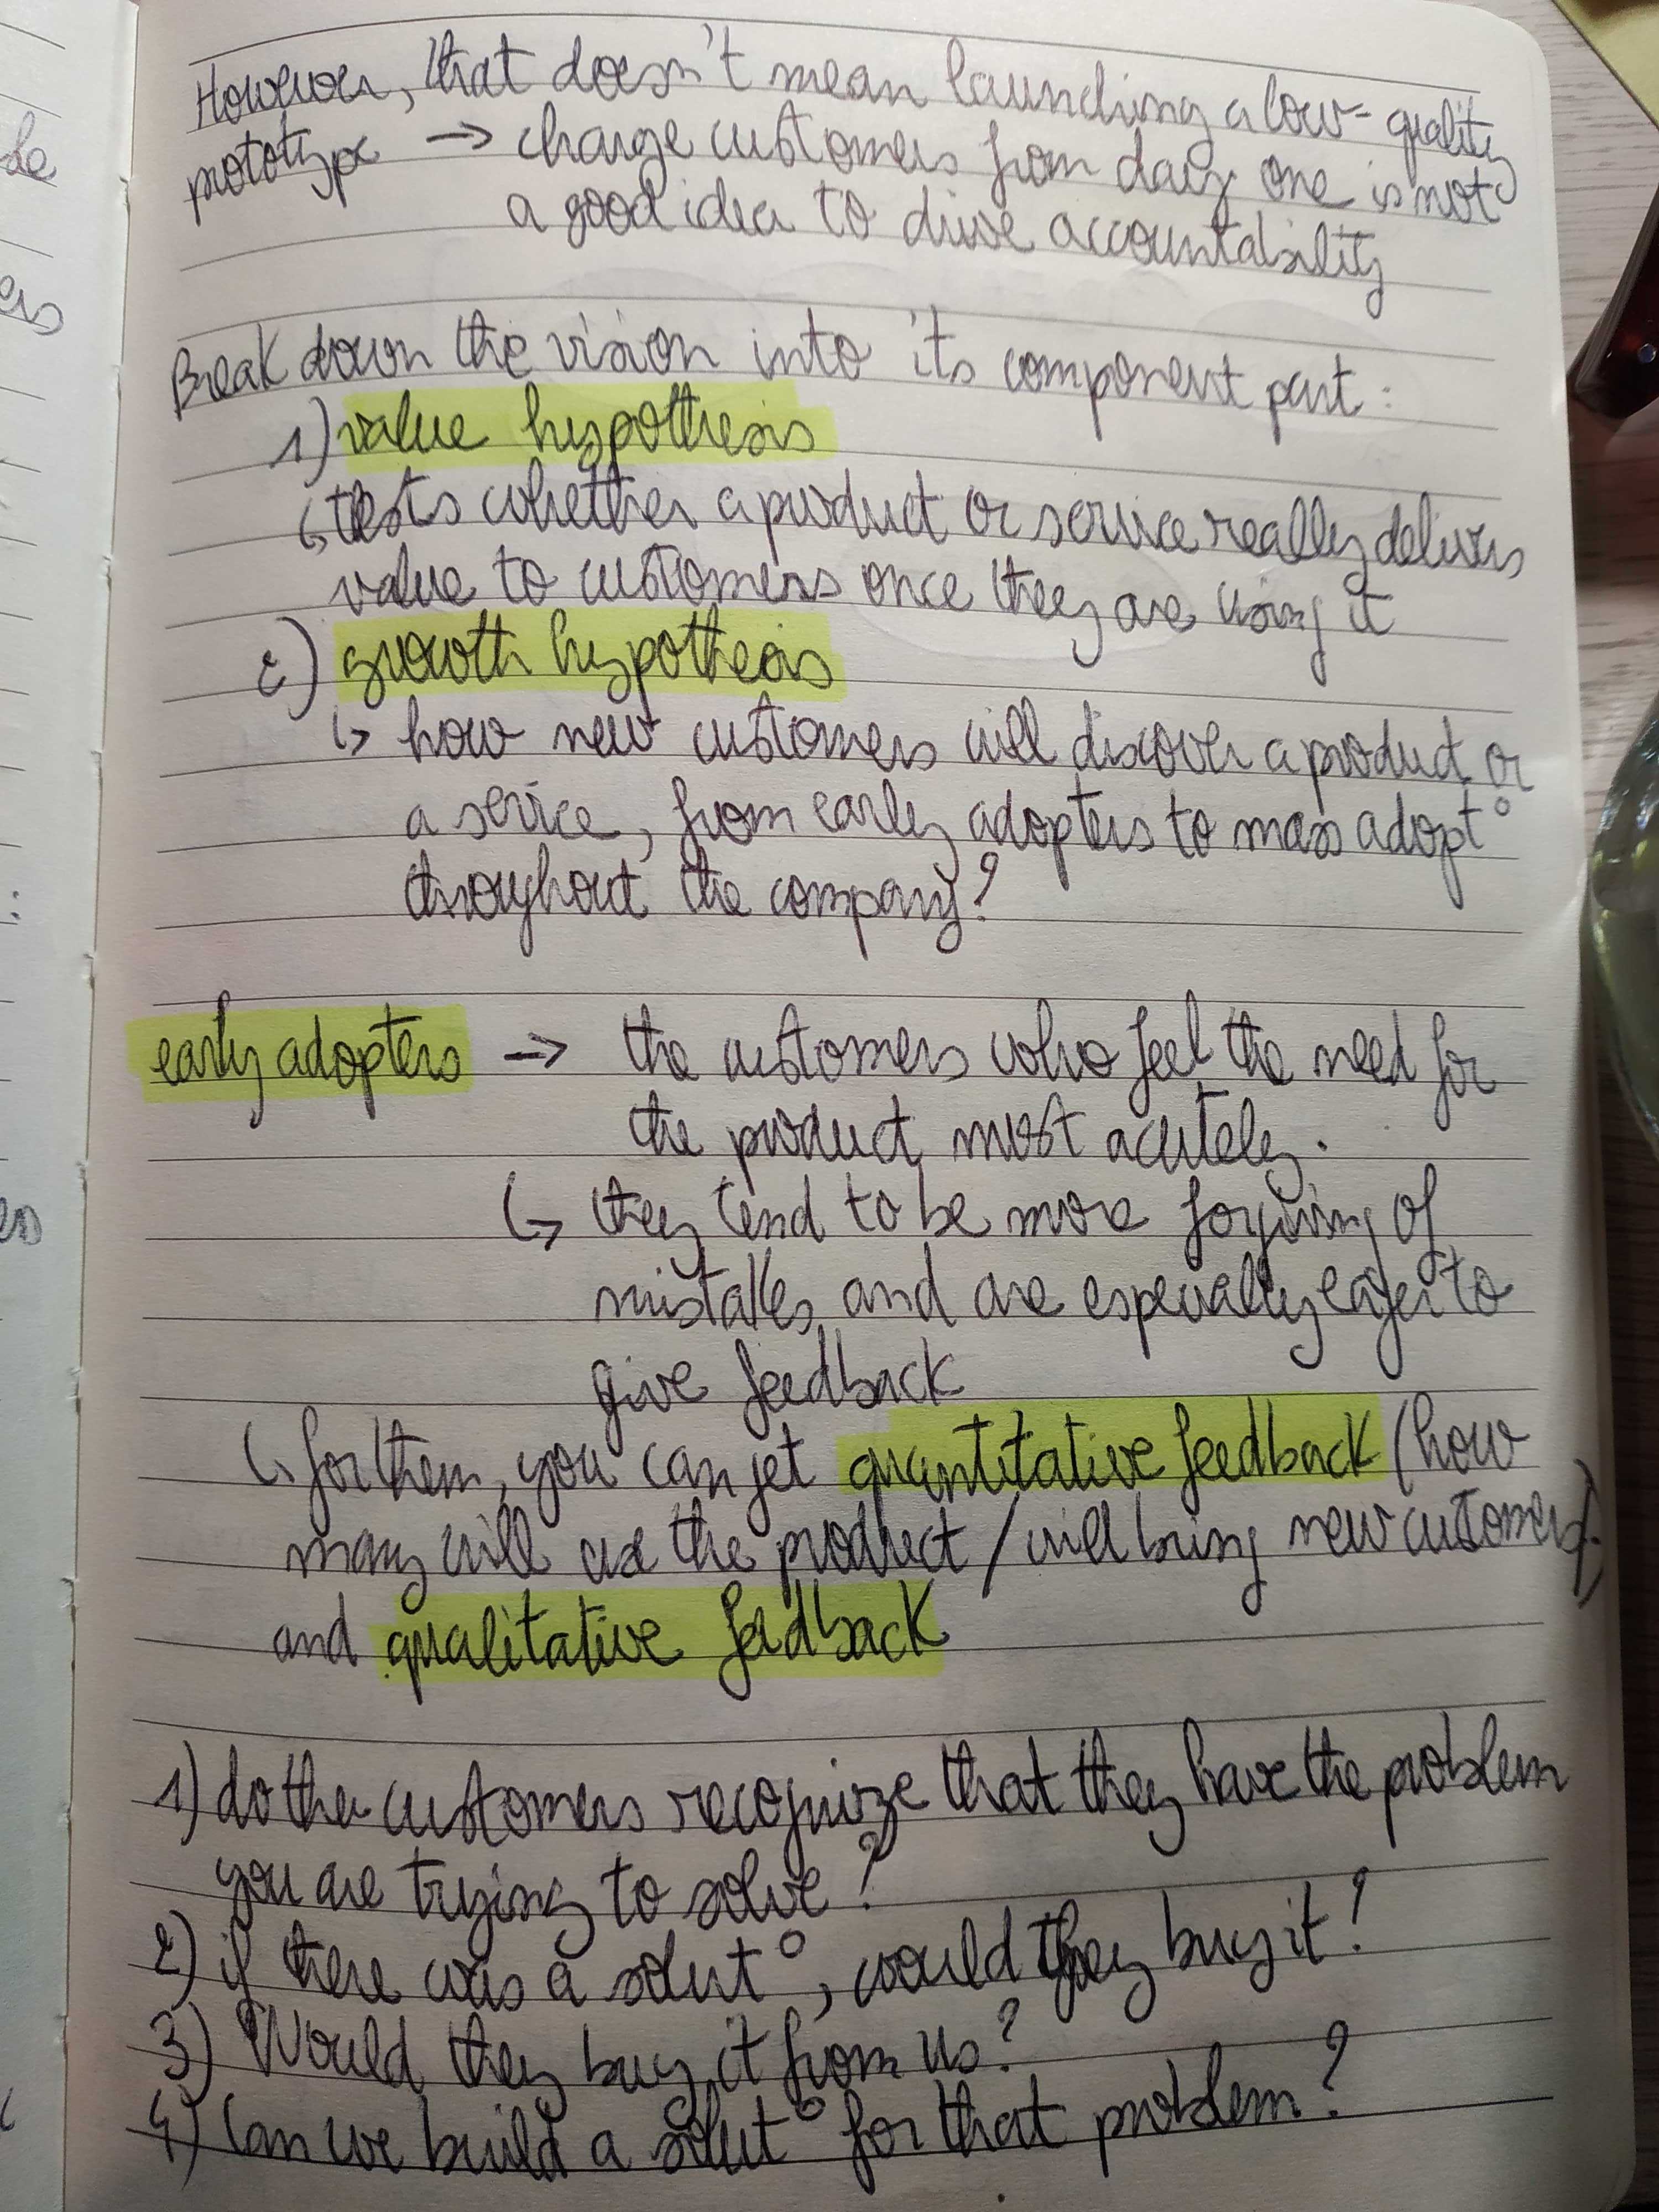 However, that doesn't mean launching a low-quality
prototype → charge customers from day one is not
a good idea to drive accountability
Break down the vision into its component part :
1) value hypothesis
↳ tests whether a product or service really delivers
value to customers once they are using it
2) growth hypothesis
↳ how new customers will discover a product or
a service, from early adopters to mass adopt°
throughout the company?
early adopters → the customers who feel the need for
the product most acutely.
↳ they tend to be more forgiving of
mistakes and are especially eager to
give feedback
↳ for them, you can get quantitative feedback (how
many will use the product / will bring new customers).
and qualitative feedback
1) do the customers recognize that they have the problem
you are trying to solve?
2) if there was a solut°, would they buy it?
3) Would they buy it from us?
4) Can we build a solut° for that problem?
de
ers
:
es